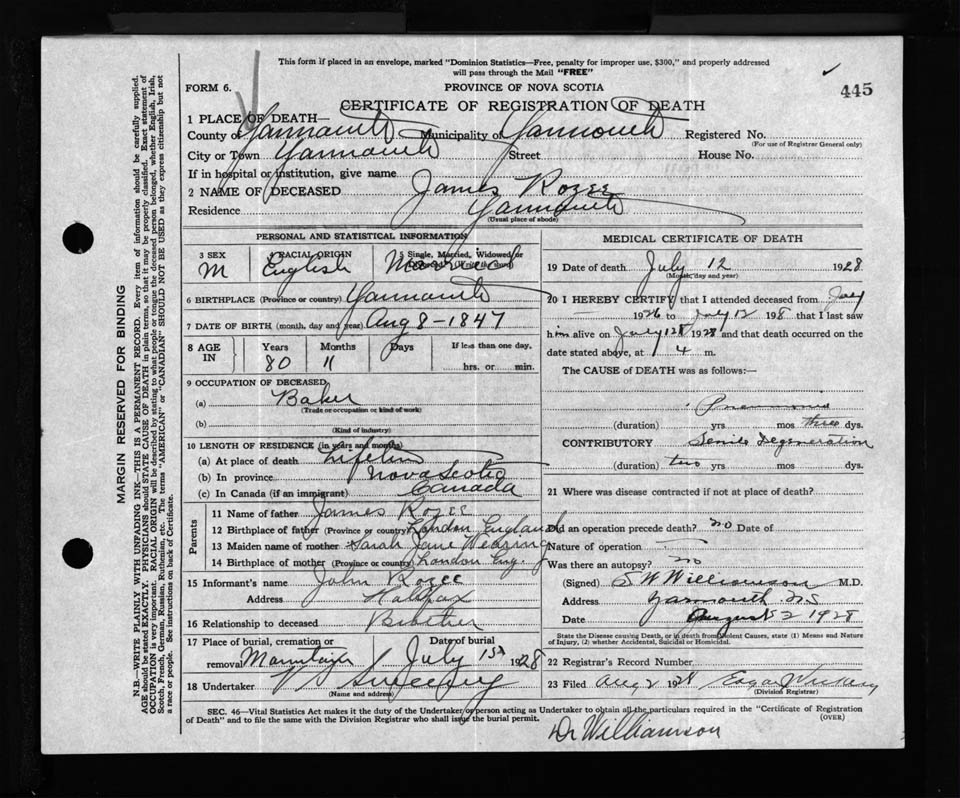 This form if placed in an envelope, marked "Dominion Statistics—Free, penalty for improper use, $300," and properly addressed
will pass through the Mail "FREE"
FORM 6.
PROVINCE OF NOVA SCOTIA
445
CERTIFICATE OF REGISTRATION OF DEATH
1 PLACE OF DEATH—
County of Yarmouth Municipality of Yarmouth Registered No.
(For use of Registrar General only)
City or Town Yarmouth Street House No.
If in hospital or institution, give name
2 NAME OF DECEASED James Rozee
Residence Yarmouth
(Usual place of abode)
PERSONAL AND STATISTICAL INFORMATION
3 SEX
M
4 RACIAL ORIGIN
English
5 Single, Married, Widowed or
Divorced (Write the word)
Married
6 BIRTHPLACE (Province or country) Yarmouth
7 DATE OF BIRTH (month, day and year) Aug 8-1847
8 AGE IN
Years Months Days If less than one day,
80 11 hrs. or min.
9 OCCUPATION OF DECEASED
(a) Baker
(Trade or occupation or kind of work)
(b)
(Kind of industry)
10 LENGTH OF RESIDENCE (in years and months)
(a) At place of death Lifetime
(b) In province Nova Scotia
(c) In Canada (if an immigrant) Canada
Parents
11 Name of father James Rozee
12 Birthplace of father (Province or country) London England
13 Maiden name of mother Sarah Jane
14 Birthplace of mother (Province or country) London Eng.
15 Informant's name John Rozee
Address Halifax
16 Relationship to deceased Brother
17 Place of burial, cremation or removal Date of burial
July 15th 1928
18 Undertaker V S Sweeney
(Name and address)
MEDICAL CERTIFICATE OF DEATH
19 Date of death July 12 1928
(Month, day and year)
20 I HEREBY CERTIFY that I attended deceased from July
1926 to July 12 1928 that I last saw
him alive on July 12th 1928 and that death occurred on
date stated above, at 4 m.
The CAUSE of DEATH was as follows:—
Pneumonia
(duration) yrs mos three dys.
CONTRIBUTORY Senile Degeneration
(duration) two yrs mos dys.
21 Where was disease contracted if not at place of death?
Did an operation precede death? no Date of
Nature of operation
Was there an autopsy? no
(Signed) S W Williamson M.D.
Address Yarmouth N S
Date August 2 1928
State the Disease causing Death, or in death from Violent Causes, state (1) Means and Nature
of Injury, (2) whether Accidental, Suicidal or Homicidal.
22 Registrar's Record Number
23 Filed Aug 2 1928 Edgar
(Division Registrar)
SEC. 46—Vital Statistics Act makes it the duty of Undertaker or person acting as Undertaker to obtain all the particulars required in the "Certificate of Registration
of Death" and to file the same with the Division Registrar who shall issue the burial permit.
(OVER)
Dr Williamson
MARGIN RESERVED FOR BINDING
N.B.—WRITE PLAINLY WITH UNFADING INK—THIS IS A PERMANENT RECORD. Every item of information should be carefully supplied.
AGE should be stated EXACTLY. PHYSICIANS should STATE CAUSE OF DEATH in plain terms, so that it may be properly classified. Exact statement of
OCCUPATION is very important. RACIAL ORIGIN will be described by stating to what people or tongue the deceased person belonged, whether English, Irish,
Scotch, French, German, Russian, Ruthenian, etc. The terms "AMERICAN" or "CANADIAN" SHOULD NOT BE USED as they express citizenship but not
a race or people. See instructions on back of Certificate.